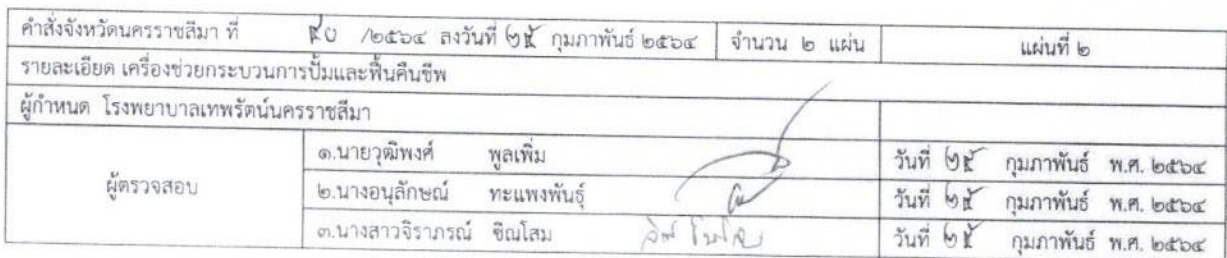 คำสั่งจังหวัดนครราชสีมา ที่ ๙๐ /๒๕๖๔ ลงวันที่ ๒๕ กุมภาพันธ์ ๒๕๖๔ จำนวน ๒ แผ่น แผ่นที่ ๒
รายละเอียด เครื่องช่วยกระบวนการปั๊มและฟื้นคืนชีพ
ผู้กำหนด โรงพยาบาลเทพรัตน์นครราชสีมา
ผู้ตรวจสอบ
๑.นายวุฒิพงศ์ พูลเพิ่ม วันที่ ๒๕ กุมภาพันธ์ พ.ศ. ๒๕๖๔
๒.นางอนุลักษณ์ ทะแพงพันธุ์ วันที่ ๒๕ กุมภาพันธ์ พ.ศ. ๒๕๖๔
๓.นางสาวจิราภรณ์ ชิณโสม วันที่ ๒๕ กุมภาพันธ์ พ.ศ. ๒๕๖๔